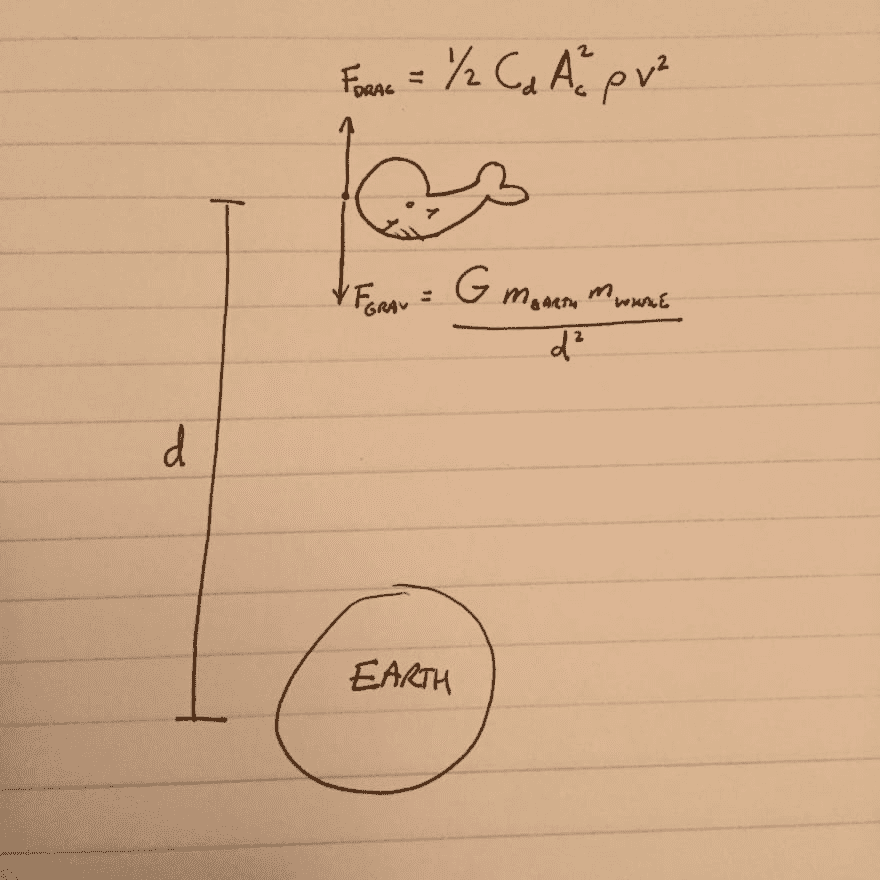 F_DRAG = 1/2 C_d A_c² ρ v²
F_GRAV = G m_EARTH m_WHALE
d²
d
EARTH